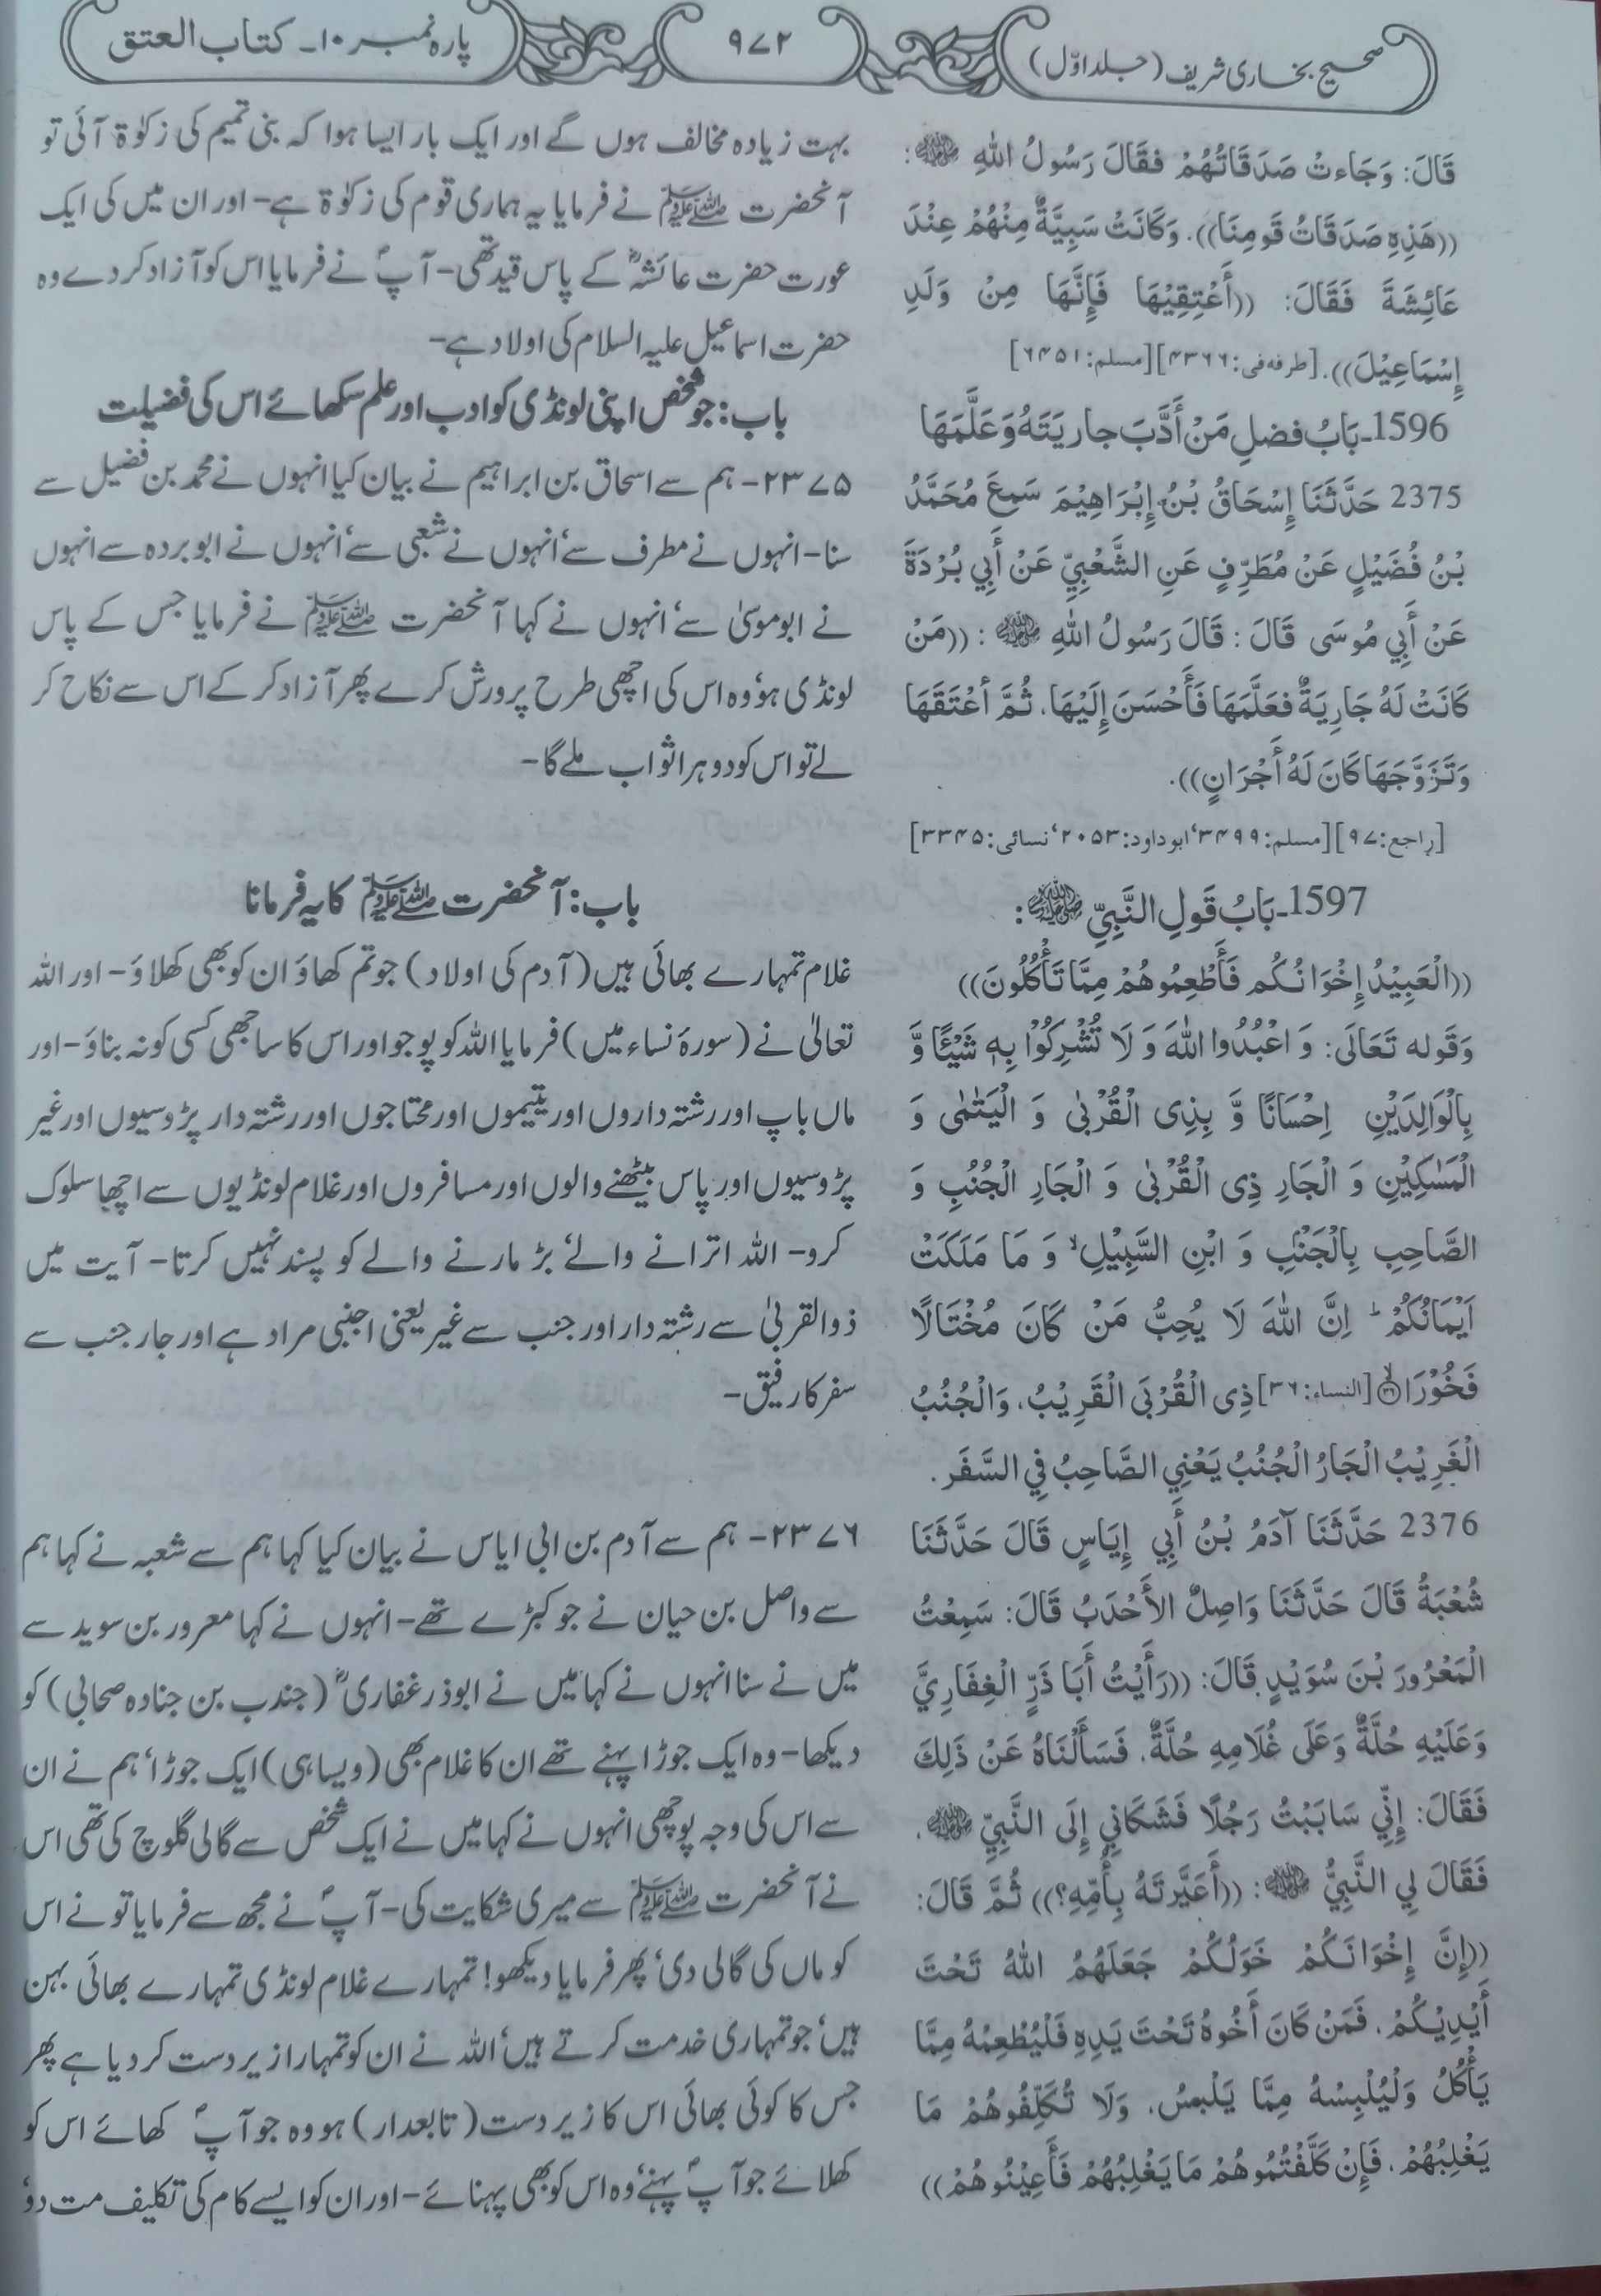 صحیح بخاری شریف (جلد اوّل)
۹۷۲
پارہ نمبر ۱۰۔ کتاب العتق
قَالَ: وَجَاءتْ صَدَقَاتُهُمْ فَقَالَ رَسُولُ اللهِ ﷺ:
((هَذِهِ صَدَقَاتُ قَومِنَا)). وَكَانَتْ سَبِيَّةٌ مِنْهُمْ عِنْدَ
عَائِشَةَ فَقَالَ: ((أَعْتِقِيْهَا فَإِنَّهَا مِنْ وَلَدِ
إِسْمَاعِيْلَ)). [طرفه فی: ۴۳۶۶][مسلم: ۶۴۵۱]
1596۔ بَابُ فضلِ مَنْ أَدَّبَ جاريَتَهُ وَعَلَّمَهَا
2375 حَدَّثَنَا إِسْحَاقُ بْنُ إِبْرَاهِيْمَ سَمِعَ مُحَمَّدُ
بْنُ فُضَيْلٍ عَنْ مُطَرِّفٍ عَنِ الشَّعْبِيِّ عَنْ أَبِي بُرْدَةَ
عَنْ أَبِي مُوسَى قَالَ : قَالَ رَسُولُ اللهِ ﷺ : ((مَنْ
كَانَتْ لَهُ جَارِيَةٌ فَعَلَّمَهَا فَأَحْسَنَ إِلَيْهَا، ثُمَّ أعْتَقَهَا
وَتَزَوَّجَهَا كَانَ لَهُ أَجْرَانِ)).
[راجع: ۹۷][مسلم: ۳۴۹۹، ابو داود: ۲۰۵۳، نسائی: ۳۳۴۵]
1597۔ بَابُ قَولِ النَّبِيِّ ﷺ :
((الْعَبِيْدُ إِخْوَانُكُم فَأَطْعِمُوهُمْ مِمَّا تَأْكُلُونَ))
وَقَوله تَعَالَى: وَ اعْبُدُوا اللهَ وَ لَا تُشْرِكُوْا بِهٖ شَيْئًا وَّ
بِالْوَالِدَيْنِ اِحْسَانًا وَّ بِذِى الْقُرْبٰى وَ الْيَتٰمٰى وَ
الْمَسٰكِيْنِ وَ الْجَارِ ذِى الْقُرْبٰى وَ الْجَارِ الْجُنُبِ وَ
الصَّاحِبِ بِالْجَنْۢبِ وَ ابْنِ السَّبِيْلِ ۙ وَ مَا مَلَكَتْ
اَيْمَانُكُمْ ؕ اِنَّ اللهَ لَا يُحِبُّ مَنْ كَانَ مُخْتَالًا
فَخُوْرًا ۙ﴿۳۶﴾ [النساء: ۳۶] ذِى الْقُرْبَى الْقَرِيْبُ، وَالْجُنُبُ
الْغَرِيْبُ الْجَارُ الْجُنُبُ يَعْنِي الصَّاحِبُ فِي السَّفَر .
2376 حَدَّثَنَا آدَمُ بْنُ أَبِي إِيَاسٍ قَالَ حَدَّثَنَا
شُعْبَةُ قَالَ حَدَّثَنَا وَاصِلٌ الأَحْدَبُ قَالَ: سَمِعْتُ
الْمَعْرُورَ بْنَ سُوَيْدٍ قَالَ: ((رَأَيْتُ أَبَا ذَرٍّ الْغِفَارِيَّ
وَعَلَيْهِ حُلَّةٌ وَعَلَى غُلَامِهِ حُلَّةٌ، فَسَأَلْنَاهُ عَنْ ذَلِكَ
فَقَالَ: إِنِّي سَابَبْتُ رَجُلًا فَشَكَانِي إِلَى النَّبِيِّ ﷺ،
فَقَالَ لِي النَّبِيُّ ﷺ: ((أَعَيَّرتَهُ بِأُمِّهِ؟)) ثُمَّ قَالَ:
((إِنَّ إِخْوَانَكُمْ خَوَلُكُمْ جَعَلَهُمُ اللهُ تَحْتَ
أَيْدِيْكُمْ، فَمَنْ كَانَ أَخُوهُ تَحْتَ يَدِهِ فَلْيُطْعِمْهُ مِمَّا
يَأْكُلُ وَلْيُلْبِسْهُ مِمَّا يَلْبسُ، وَلَا تُكَلِّفُوهُمْ مَا
يَغْلِبُهُمْ، فَإِنْ كَلَّفْتُمُوهُمْ مَا يَغْلِبُهُمْ فَأَعِيْنُوهُمْ))
بہت زیادہ مخالف ہوں گے اور ایک بار ایسا ہوا کہ بنی تمیم کی زکوٰۃ آئی تو
آنحضرت ﷺ نے فرمایا یہ ہماری قوم کی زکوٰۃ ہے- اور ان میں کی ایک
عورت حضرت عائشہؓ کے پاس قید تھی- آپؐ نے فرمایا اس کو آزاد کر دے وہ
حضرت اسماعیل علیہ السلام کی اولاد ہے-
باب: جو شخص اپنی لونڈی کو ادب اور علم سکھائے اس کی فضیلت
۲۳۷۵- ہم سے اسحاق بن ابراہیم نے بیان کیا انہوں نے محمد بن فضیل سے
سنا- انہوں نے مطرف سے، انہوں نے شعبی سے، انہوں نے ابو بردہ سے انہوں
نے ابو موسیٰ سے، انہوں نے کہا آنحضرت ﷺ نے فرمایا جس کے پاس
لونڈی ہو، وہ اس کی اچھی طرح پرورش کرے پھر آزاد کر کے اس سے نکاح کر
لے تو اس کو دوہرا ثواب ملے گا-
باب: آنحضرت ﷺ کا یہ فرمانا
غلام تمہارے بھائی ہیں (آدم کی اولاد) جو تم کھاؤ ان کو بھی کھلاؤ- اور اللہ
تعالیٰ نے (سورۂ نساء میں) فرمایا اللہ کو پوجو اور اس کا ساجھی کسی کو نہ بناؤ- اور
ماں باپ اور رشتہ داروں اور یتیموں اور محتاجوں اور رشتہ دار پڑوسیوں اور غیر
پڑوسیوں اور پاس بیٹھنے والوں اور مسافروں اور غلام لونڈیوں سے اچھا سلوک
کرو- اللہ اترانے والے، بڑ مارنے والے کو پسند نہیں کرتا- آیت میں
ذوالقربیٰ سے رشتہ دار اور جنب سے غیر یعنی اجنبی مراد ہے اور جار جنب سے
سفر کا رفیق-
۲۳۷۶- ہم سے آدم بن ابی ایاس نے بیان کیا کہا ہم سے شعبہ نے کہا ہم
سے واصل بن حیان نے جو کبڑے تھے- انہوں نے کہا معرور بن سوید سے
میں نے سنا انہوں نے کہا میں نے ابوذر غفاریؓ (جندب بن جنادہ صحابی) کو
دیکھا- وہ ایک جوڑا پہنے تھے ان کا غلام بھی (ویسا ہی) ایک جوڑا، ہم نے ان
سے اس کی وجہ پوچھی انہوں نے کہا میں نے ایک شخص سے گالی گلوچ کی تھی اس
نے آنحضرت ﷺ سے میری شکایت کی- آپؐ نے مجھ سے فرمایا تو نے اس
کو ماں کی گالی دی، پھر فرمایا دیکھو! تمہارے غلام لونڈی تمہارے بھائی بہن
ہیں، جو تمہاری خدمت کرتے ہیں، اللہ نے ان کو تمہارا زیردست کر دیا ہے پھر
جس کا کوئی بھائی اس کا زیردست (تابعدار) ہو وہ جو آپؐ کھائے اس کو
کھلائے جو آپؐ پہنے، وہ اس کو بھی پہنائے- اور ان کو ایسے کام کی تکلیف مت دو،